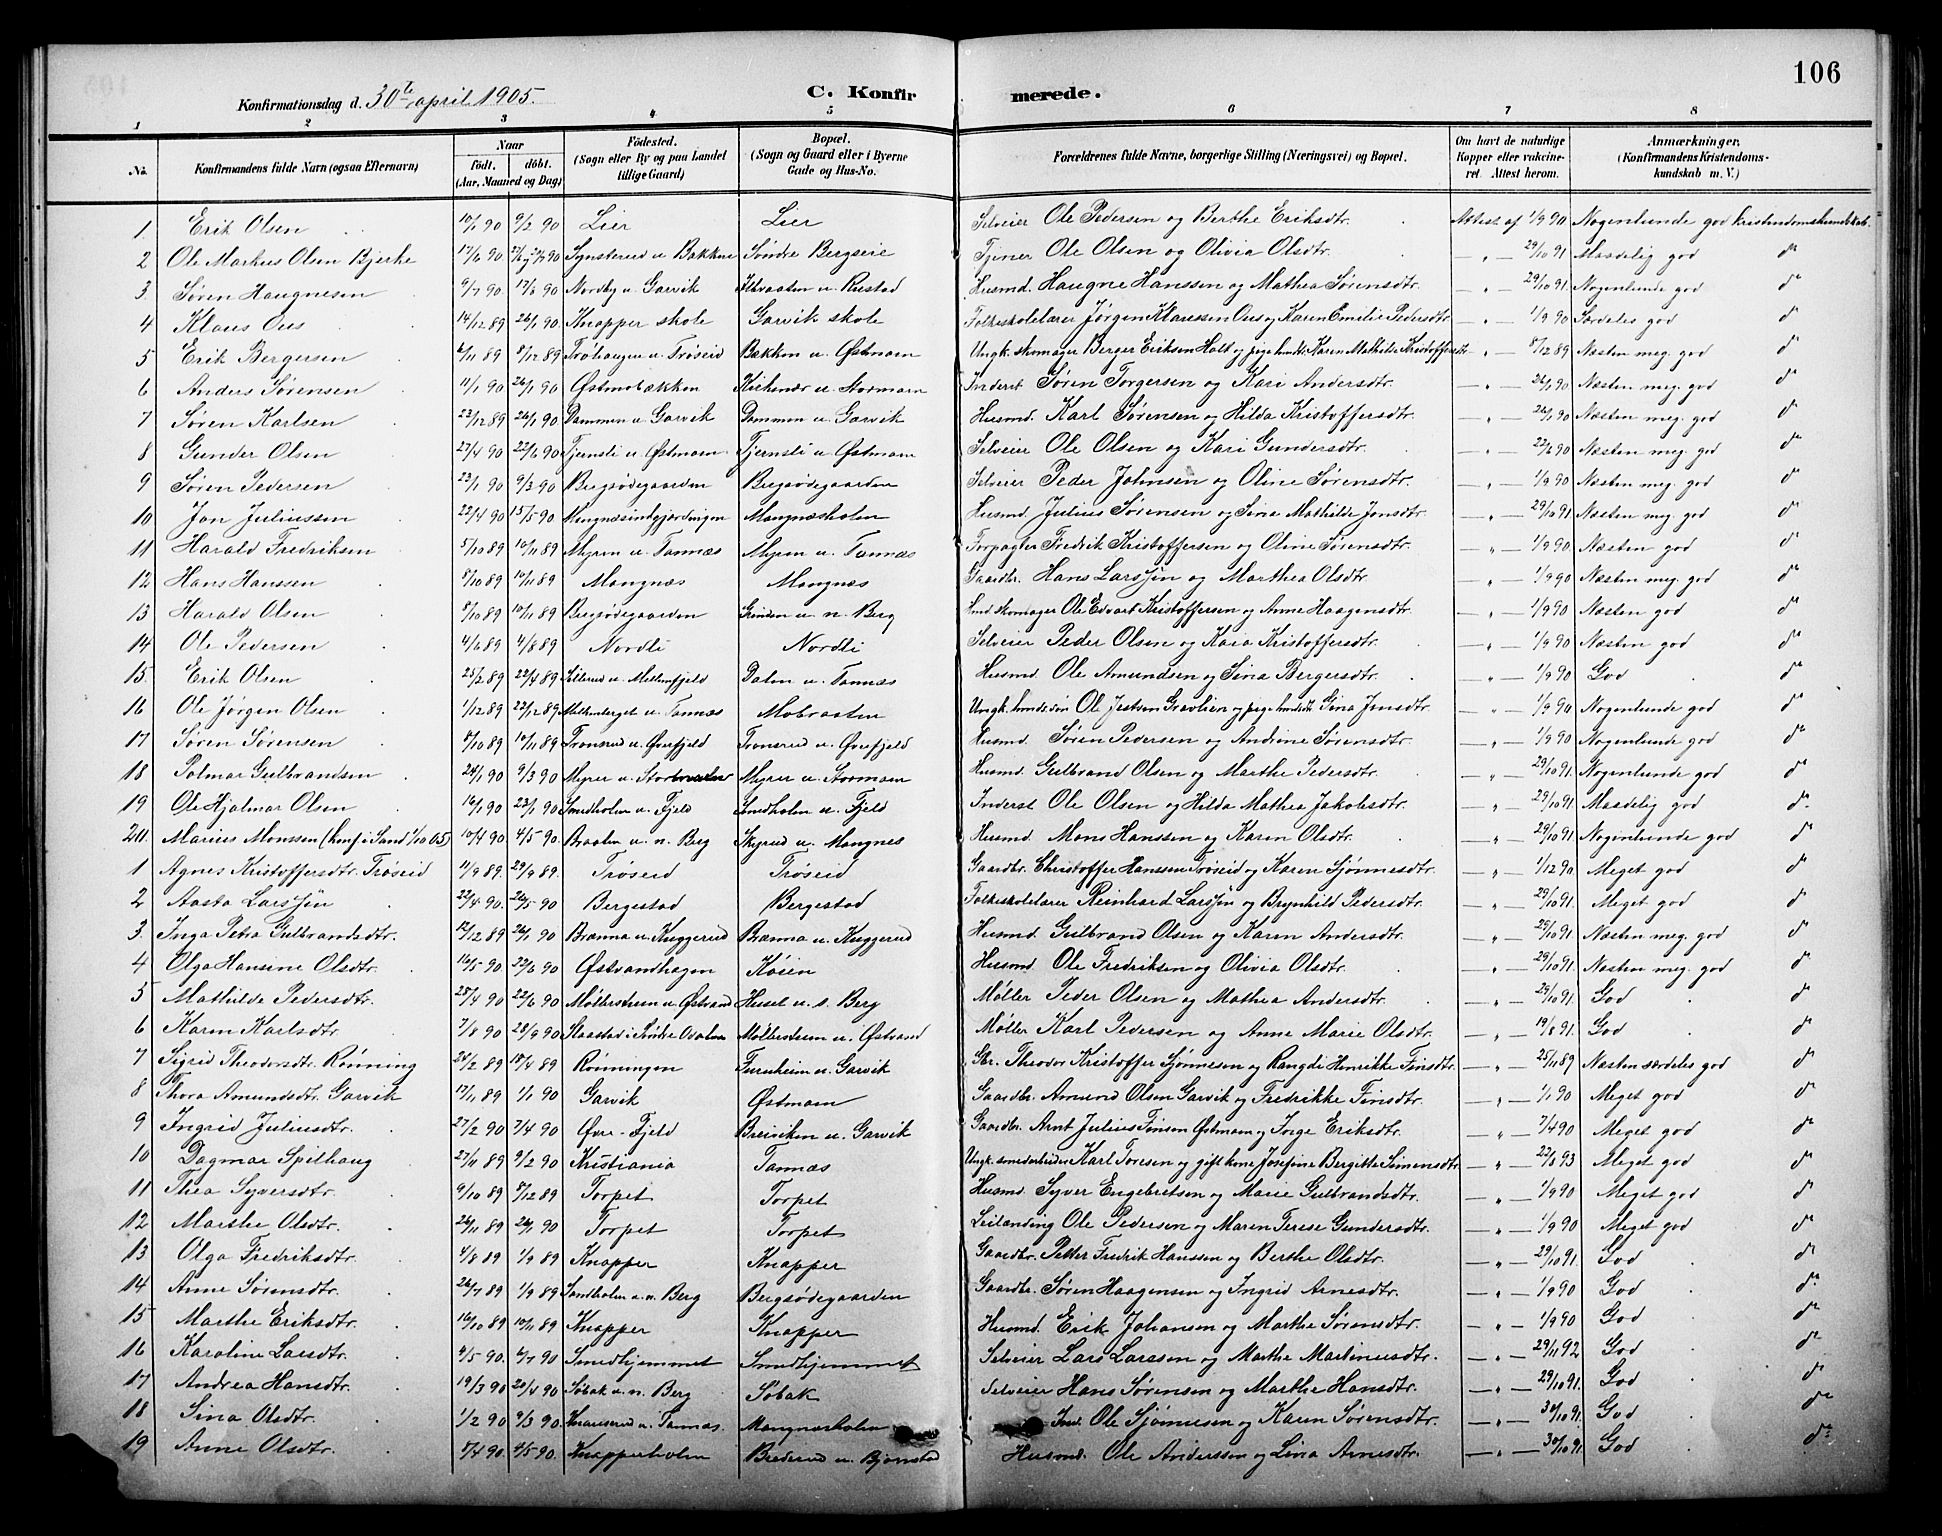 106
Konfirmationsdag d. 30te april 1905. C. Konfirmerede.
1 2 3 4 5 6 7 8
No. Konfirmandens fulde Navn (ogsaa Efternavn) Naar født. døbt. (Aar, Maaned og Dag) Fødested. (Sogn eller By og paa Landet tillige Gaard) Bopæl. (Sogn og Gaard eller i Byerne Gade og Hus-No. Forældrenes fulde Navne, borgerlige Stilling (Næringsvei) og Bopæl. Om havt de naturlige Kopper eller vakcineret. Attest herom. Anmærkninger. (Konfirmandens Kristendomskundskab m. V.)
1 Erik Olsen 10/1 90 9/2 90 Lier Lier Selveier Ole Pedersen og Berthe Eriksdtr. Attest af 1/9 90 Nogenlunde god kristendomskundskab.
2 Ole Markus Olsen Bjerke 17/6 90 Bakken Søndre Bergseie Tjener Ole Olsen og Olivia Olsdtr. — „ — 29/10 91 Maadelig god do
3 Søren Haugnesen 9/7 90 17/8 90 Nordby u. Garvik u. Rustad Husmd. Haugne Hanssen og Mathea Sørensdtr. — „ — 29/10 91. Nogenlunde god do
4 Klaus Ous 14/12 89 26/1 90 Knapper skole Garvik skole Folkeskolelærer Jørgen Klaressen Ous og Karen Emilie Pedersdtr — „ — 1/9 90 Særdeles god do
5 Erik Bergersen 6/11 89 8/12 89 Trøhaugen u. Trøseid Bakken u. Østmoen Ungk. skomager Berger Eriksen Holt og pige Karen Mathilde Kristoffersdtr — „ — 8/12 89 Næsten meg. god do
6 Anders Sørensen 11/1 90 26/1 90 Østmobakken Kirkenær u. Stormoen Inderst Søren Torgersen og Kari Andersdtr. — „ — 26/1 90 Næsten meg. god do
7 Søren Karlsen 23/12 89 26/1 90 Dammen u. Garvik Dammen u. Garvik Husmd. Karl Sørensen og Hilda Kristoffersdtr. — „ — 26/1 90 Næsten meg. god do
8 Gunder Olsen 27/4 90 22/6 90 Tjernsli u. Østmoen Tjernsli u. Østmoen Selveier Ole Olsen og Kari Gundersdtr. — „ — 22/6 90 Næsten meg. god do
9 Søren Pedersen 23/1 90 9/3 90 Bergsødegaarden Bergsødegaarden Selveier Peder Johnsen og Oline Sørensdtr. — „ — 1/9 90 Næsten meg. god do
10 Jon Juliussen 22/4 90 15/5 90 Mangnæsholen Husmd. Julius Sørensen og Sine Mathilde Jonsdtr. — „ — 29/10 91. Næsten meg. god do
11 Harald Fredriksen 5/10 89 10/11 89 Myren u. Tannæs Myren u. Tannæs Forpagter Fredrik Kristoffersen og Oline Sørensdtr. — „ — 1/9 90 Næsten god do
12 Hans Hanssen 8/10 89 10/11 89 Mangnæs Mangnæs Gaardbr. Hans Larssøn og Marthea Olsdtr — „ — 1/9 90 Næsten meg. god do
13 Harald Olsen 8/10 89 10/11 89 Bergsødegaarden Grinden u. n. Berg skomager Ole Edvart Kristoffersen og Anne Haagensdtr. — „ — 1/9 90 Næsten god do
14 Ole Pedersen 4/6 89 4/8 89 Nordli Nordli Selveier Peder Olsen og Kaia Kristoffersdtr. — „ — 1/9 90 Næsten god do
15. Erik Olsen 25/2 89 22/4 89 Lillerud u. Mellemfjeld Dalen u. Tannæs Husmd. Ole Amundsen og Sina Bergersdtr. — „ — 1/9 90 God do
16 Ole Jørgen Olsen 1/12 89 22/12 89 u. Tannæs Mobraaten Ungk. Ole Graalien og pige Sina Jonsdtr. — „ — 1/9 90 Nogenlunde god do
17 Søren Sørensen 8/10 89 10/11 89 Tronsrud u. Øvrefjeld Tronsrud u. Øvrefjeld Husmd. Søren Pedersen og Andrine Sørensdtr. — „ — 1/9 90 Nogenlunde god do
18 Polmar Gulbrandsen 24/1 90 9/3 90 Myrer u. Stormoen Myrer u. Stormoen Husmd. Gulbrand Olsen og Marthe Pedersdtr. — „ — 29/10 91. Nogenlunde god do
19 Ole Hjalmar Olsen 16/1 90 23/2 90 Smedholen u. Fjeld Smedholen u. Fjeld Inderst Ole Olsen og Hilda Mathea Jakobsdtr. — „ — 29/10 91. Maadelig god do
20. Marius Monssen (konf. i Sand 1/10 05) 10/4 90 4/5 90. Braaten u. n. Berg Skyrud u. Mangnes Husmd. Mons Hanssen og Karen Olsdtr. — „ — 29/10 91. Nogenlunde god do
1 Agnes Kristoffersdtr. Trøseid 11/9 89. 29/9 89. Trøseid Trøseid Gaardbr. Christoffer Hanssen Trøseid og Karen Sjønnesdtr. — „ — 1/12 90 Meget god do
2 Aasta Larssøn 22/4 90. 26/5 90 Bergestad Bergestad Folkeskolelærer Reinhard Larssøn og Brynhild Pedersdtr. — „ — 29/10 91. Meget god do
3. Inga Petra Gulbrandsdtr. 12/12 89 26/1 90 Brænna u. Kuggerud Brænna u. Kuggerud Husmd. Gulbrand Olsen og Karen Andersdtr. — „ — 29/10 91 Næsten meg. god do
4 Olga Hansine Olsdtr. 16/5 90. 22/6 90 Østvandhagen Køien Husmd. Ole Fredriksen og Olivia Olsdtr. — „ — 29/10 91. Næsten meg. god do
5 Mathilde Pedersdtr. 28/4 90 22/6 90 Møllerstuen u. Østvand Husel u. s. Berg Møller Peder Olsen og Mathea Andersdtr. — „ — 29/10 91. God do
6 Karen Karlsdtr. 7/8 90 28/9 90 i Søndre Odalen Møllerstuen u. Østvand Møller Karl Pedersen og Anne Marie Olsdtr. — „ — 19/8 91. God do
7 Sigrid Theodorsdtr. Rønning 28/2 89 18/4 89 Rønningen Furuheim u. Garvik Gbr. Theodor Kristoffer Sjønnesen og Rangdi Henrikke Finsdtr. — „ — 25/11 89 Næsten særdeles god do
8 Thora Amundsdtr. Garvik 17/11 89 1/1 90 Garvik Østmoen Gaardbr. Amund Olsen Garvik og Fredrikke Finsdtr. — „ — 1/1 90 Meget god do
9 Ingrid Juliusdtr. 27/2 90 7/4 90 Øvre-Fjeld Breiviken u. Garvik Gaardbr. Arnt Julius Finsen Østmoen og Inge Eriksdtr. — „ — 7/4 90 Meget god do
10 Dagmar Spilhaug 27/11 89 9/2 90 Kristiania Tannæs Ungk. smedarbeider Karl Toresen og gift kone Josefine Bergitte Simensdtr — „ — 22/8 93 Meget god do
11 Thea Syversdtr. 9/10 89 8/12 89 Torpet Torpet Husmd. Syver Engebretsen og Marie Gulbrandsdtr. — „ — 1/9 90 Meget god do
12 Marthe Olsdtr. 26/11 89 26/1 90 Torpet Torpet Leilænding Ole Pedersen og Maren Terese Gundersdtr. — „ — 1/9 90 Meget god do
13 Olga Fredriksdtr. 4/8 89 1/9 89 Knapper Knapper Gaardbr. Petter Fredrik Hanssen og Berthe Olsdtr. — „ — 29/10 91. God do
14 Anne Sørensdtr. 26/7 89 1/9 89 Sandholen u. n. Berg Bergsødegaarden Gaardbr. Søren Haagensen og Ingrid Arnesdtr. — „ — 1/9 90 God do
15 Marthe Eriksdtr. 16/10 89 10/11 89 Knapper Knapper Husmd. Erik Johansen og Marthe Sørensdtr. — „ — 1/9 90 God do
16 Karoline Larsdtr. 4/5 90. 6/7 90 Smedhjemmet Smedhjemmet Selveier Lars Larssen og Marthe Martinusdtr. — „ — 29/11 92 God do
17 Andrea Hansdtr. 19/3 90 20/4 90 Søbak u. n. Berg Søbak Selveier Hans Sørensen og Marthe Hansdtr. — „ — 29/10 91. God do
18 Sina Olsdtr. 1/2 90 9/3 90. u. Tannæs. Mangnæsholen Ind. Ole Sjønnesen og Karen Sørensdtr. — „ — 30/10 91. God do
19 Anne Olsdtr. 5/4 90. 4/5 90. Knapperholen Brederud u. Bjørnstad Husmd. Ole Anderssen og Lina Arnesdtr. — „ — 30/10 91. God do